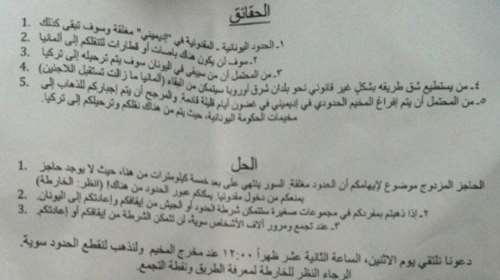 الحقائق
1. ١- الحدود اليونانية - المقدونية في "إيديميني" مغلقة وسوف تبقى كذلك
2. ٢- سوف لن يكون هناك باصات أو قطارات لتنقلكم إلى ألمانيا
3. ٣- من المحتمل أن من سيبقى في اليونان سوف يتم ترحيله إلى تركيا
4. ٤- من يستطيع شق طريقه بشكل غير قانوني نحو بلدان شرق أوروبا سيتمكن من البقاء (ألمانيا ما زالت تستقبل اللاجئين)
5. ٥- من المحتمل أن يتم إفراغ المخيم الحدودي في إيديميني في غضون أيام قليلة قادمة. والمرجح أن يتم إجباركم للذهاب إلى
مخيمات الحكومة اليونانية، حيث يتم من هناك نقلكم وترحيلكم إلى تركيا.
الحل
1. الحاجز المزدوج موضوع لإيهامكم أن الحدود مغلقة. السور ينتهي على بعد خمسة كيلومترات من هنا، حيث لا يوجد حاجز
يمنعكم من دخول مقدونيا. يمكنكم عبور الحدود من هناك! (انظر: الخارطة)
2. ٢- إذا ذهبتم بمفردكم في مجموعات صغيرة ستتمكن شرطة الحدود أو الجيش من إيقافكم وإعادتكم إلى اليونان.
3. ٣- عند تجمع ومرور آلاف الأشخاص سوية، لن تتمكن الشرطة من إيقافكم أو إعادتكم.
دعونا نلتقي يوم الاثنين، الساعة الثانية عشر ظهراً ١٢:٠٠ عند مخرج المخيم ولنذهب لنقطع الحدود سوية.
الرجاء النظر للخارطة لمعرفة الطريق ونقطة التجمع.